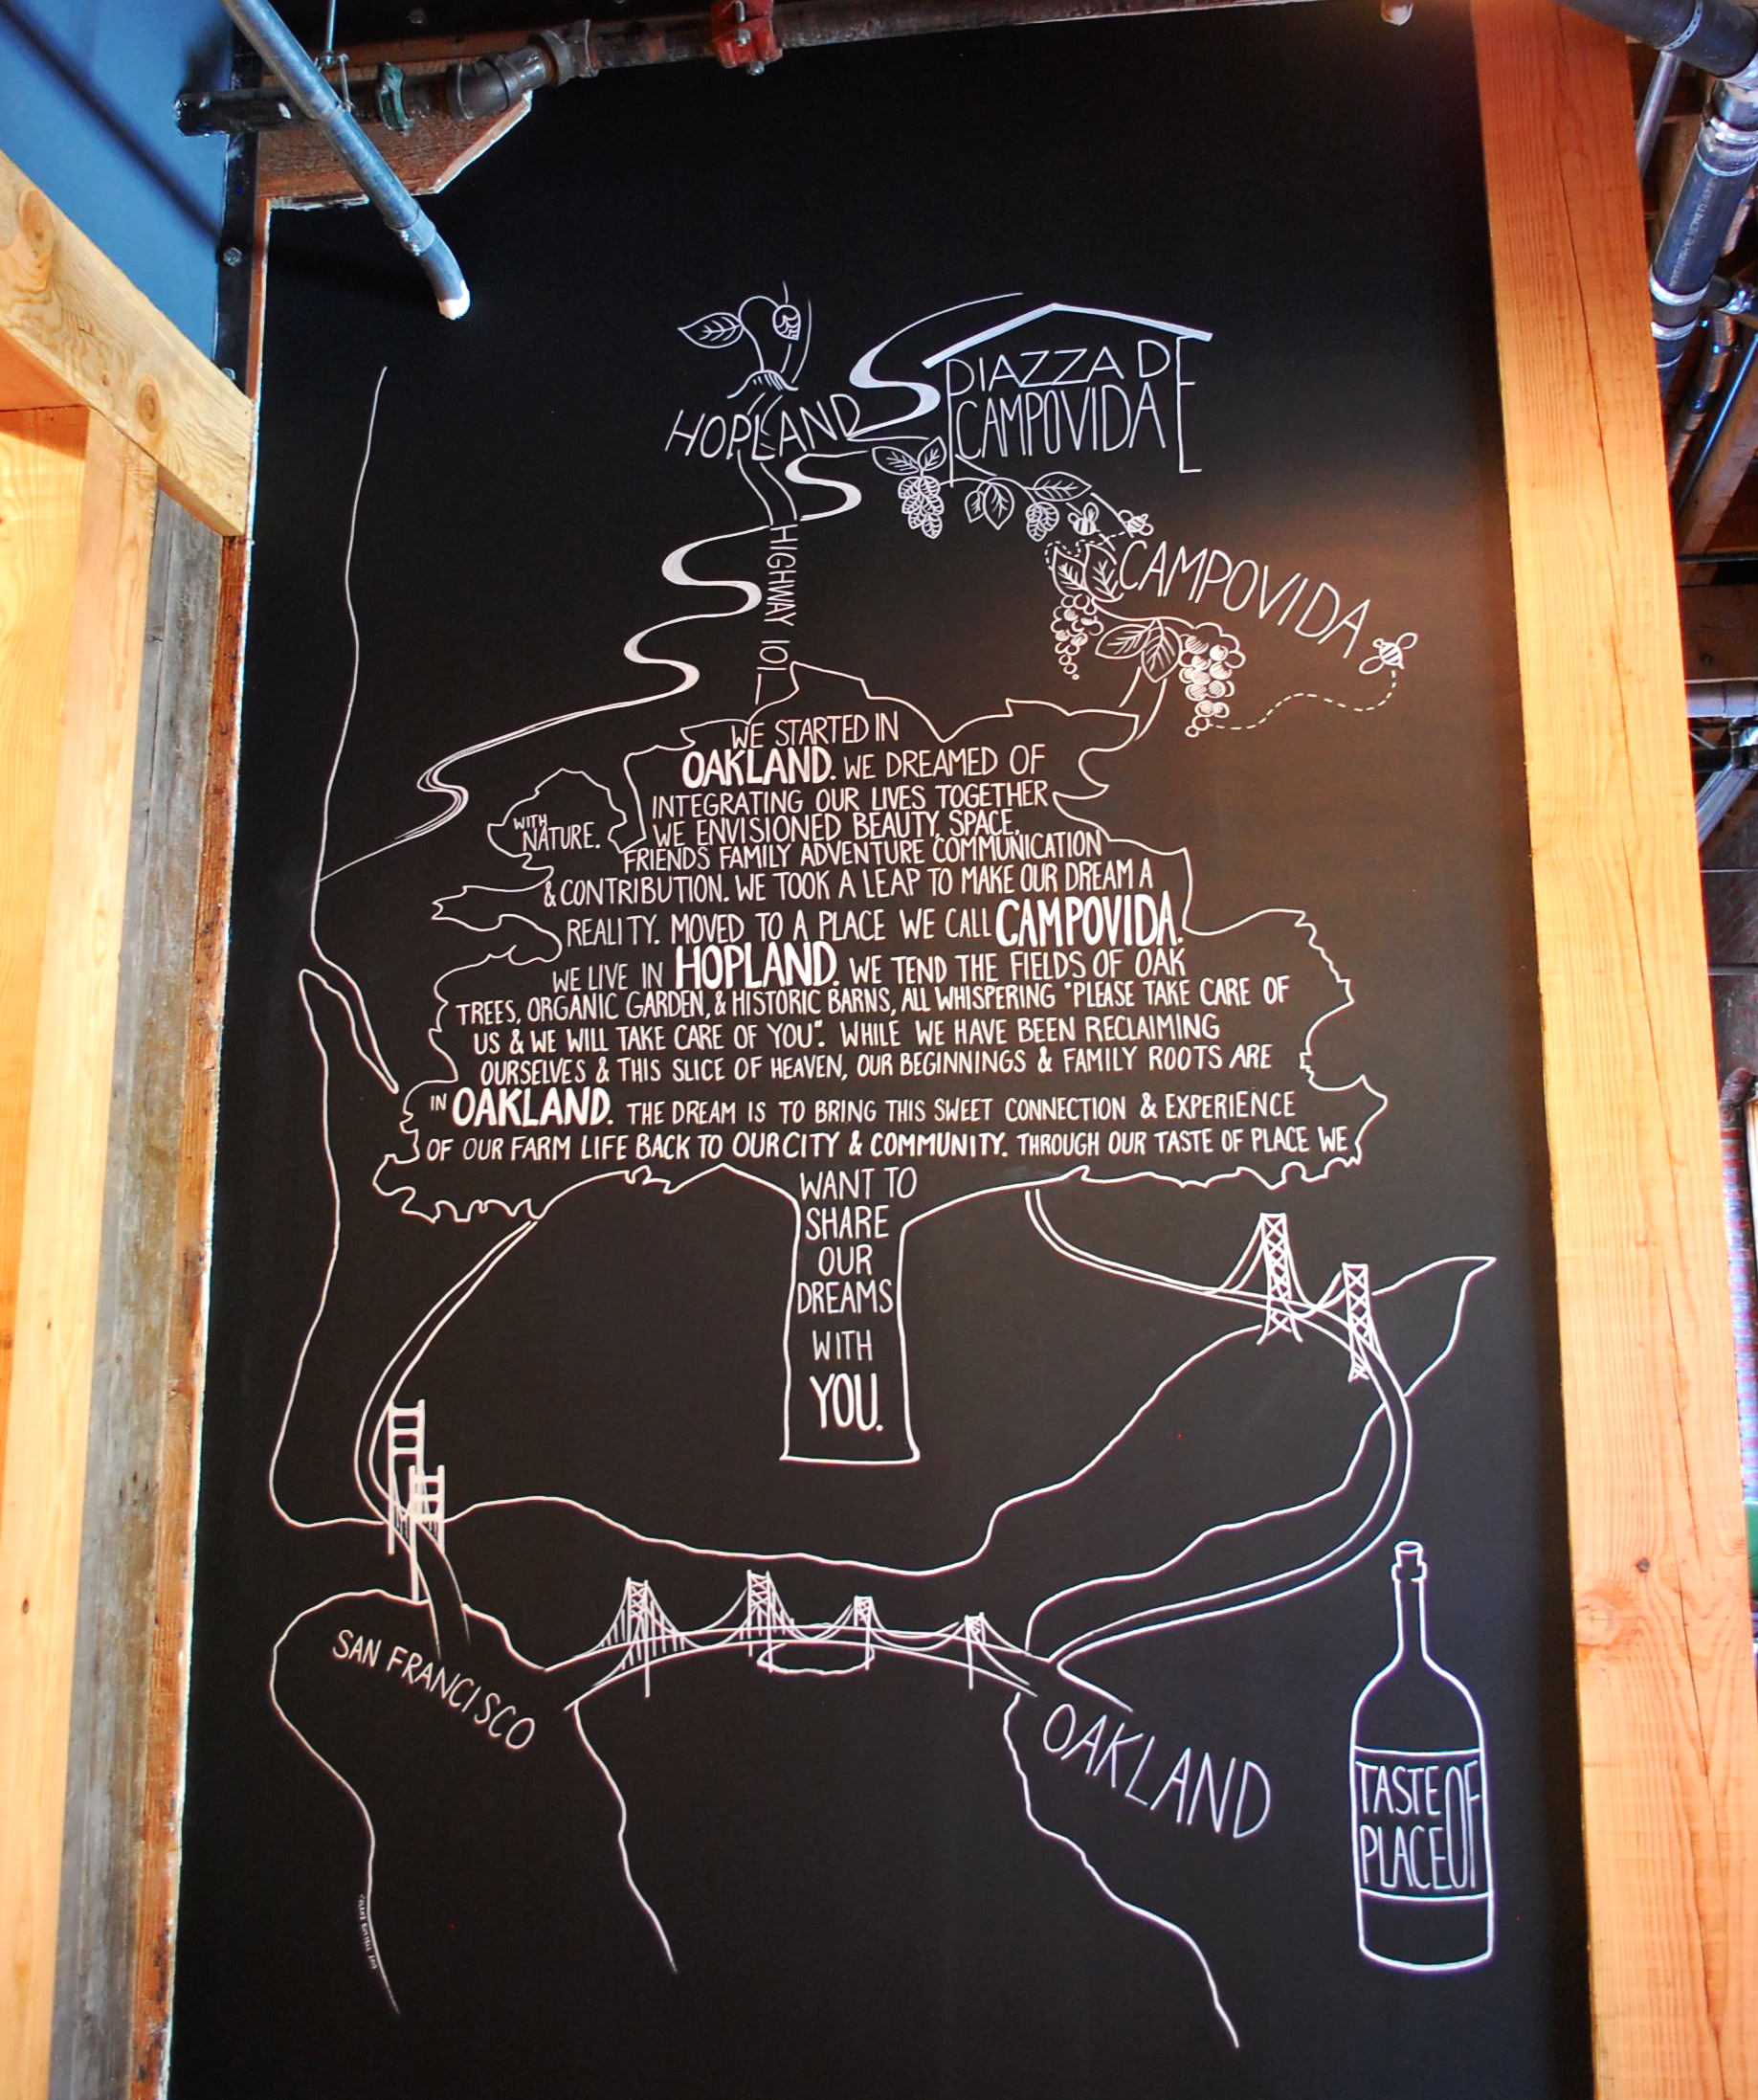 PIAZZA DE
CAMPOVIDA
HOPLAND
HIGHWAY 101
CAMPOVIDA
WE STARTED IN
OAKLAND. WE DREAMED OF
INTEGRATING OUR LIVES TOGETHER
WITH
NATURE.
WE ENVISIONED BEAUTY, SPACE,
FRIENDS FAMILY ADVENTURE COMMUNICATION
& CONTRIBUTION. WE TOOK A LEAP TO MAKE OUR DREAM A
REALITY. MOVED TO A PLACE WE CALL CAMPOVIDA.
WE LIVE IN HOPLAND. WE TEND THE FIELDS OF OAK
TREES, ORGANIC GARDEN, & HISTORIC BARNS, ALL WHISPERING "PLEASE TAKE CARE OF
US & WE WILL TAKE CARE OF YOU". WHILE WE HAVE BEEN RECLAIMING
OURSELVES & THIS SLICE OF HEAVEN, OUR BEGINNINGS & FAMILY ROOTS ARE
IN OAKLAND. THE DREAM IS TO BRING THIS SWEET CONNECTION & EXPERIENCE
OF OUR FARM LIFE BACK TO OUR CITY & COMMUNITY. THROUGH OUR TASTE OF PLACE WE
WANT TO
SHARE
OUR
DREAMS
WITH
YOU.
SAN FRANCISCO
OAKLAND
TASTE OF
PLACE